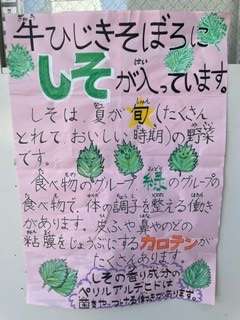 牛ひじきそぼろに
しそが入っています。
しそは、夏が旬(たくさん
とれて おいしい 時期)の野菜
です。
食べ物のグループ 緑のグループの
食べ物で、体の調子を整える働き
があります。皮ふや鼻やのどの
粘膜をじょうぶにするカロテンが
たくさんあります。
しその香り成分の
ペリルアルデヒドは
菌をやっつける働きがあります。